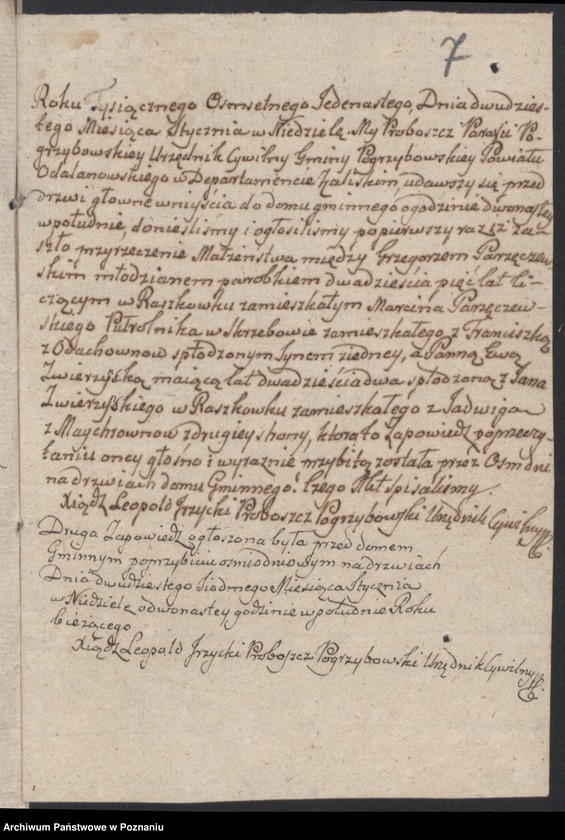 7
Roku Tysiącznego Osmsetnego Jedenastego, Dnia dwudzies-
tego Miesiąca Stycznia w Niedzielę. My Proboszcz Parafii Po-
grzybowskiey Urzędnik Cywilny Gminy Pogrzybowskiey Powiatu
Odalanowskiego w Departamencie Kaliskim, udawszy się przed
drzwi głowne wniyścia do domu gminnego o godzinie dwonastey
w południe, donieśliśmy i ogłosiliśmy popierwszy raz, iż za-
szło przyrzeczenie Małżeństwa między Grzegorzem Parzęczew-
skim młodzianem parobkiem dwadzieścia pięć lat li-
czącym w Raszkowku zamieszkałym Marcina Parzęczew-
skiego Pułrolnika w Skrzebowie zamieszkałego z Franciszką
z Odachownow spłodzonym Synem z iedney, a Panną Ewą
Zwierzyską maiącą lat dwadzieścia dwa spłodzoną z Jana
Zwierzyskiego w Raszkowku zamieszkałego z Jadwigą
z Maychrownow z drugiey strony, ktora to Zapowiedź po przeczy-
taniu oney głośno i wyraznie przybitą została przez Osm dni
na drzwiach domu Gminnego. Czego Akt spisaliśmy.
Xiądz Leopold Jrzycki Proboszcz Pogrzybowski Urzędnik Cywilny
Druga Zapowiedź ogłoszona była przed domem
Gminnym po przybiciu ośmiodniowym na drzwiach
Dnia dwudziestego Siodmego Miesiąca Stycznia
w Niedzielę o dwonastey godzinie w południe Roku
bieżącego
Xiądz Leopold Jrzycki Proboszcz Pogrzybowski Urzędnik Cywilny
Archiwum Państwowe w Poznaniu